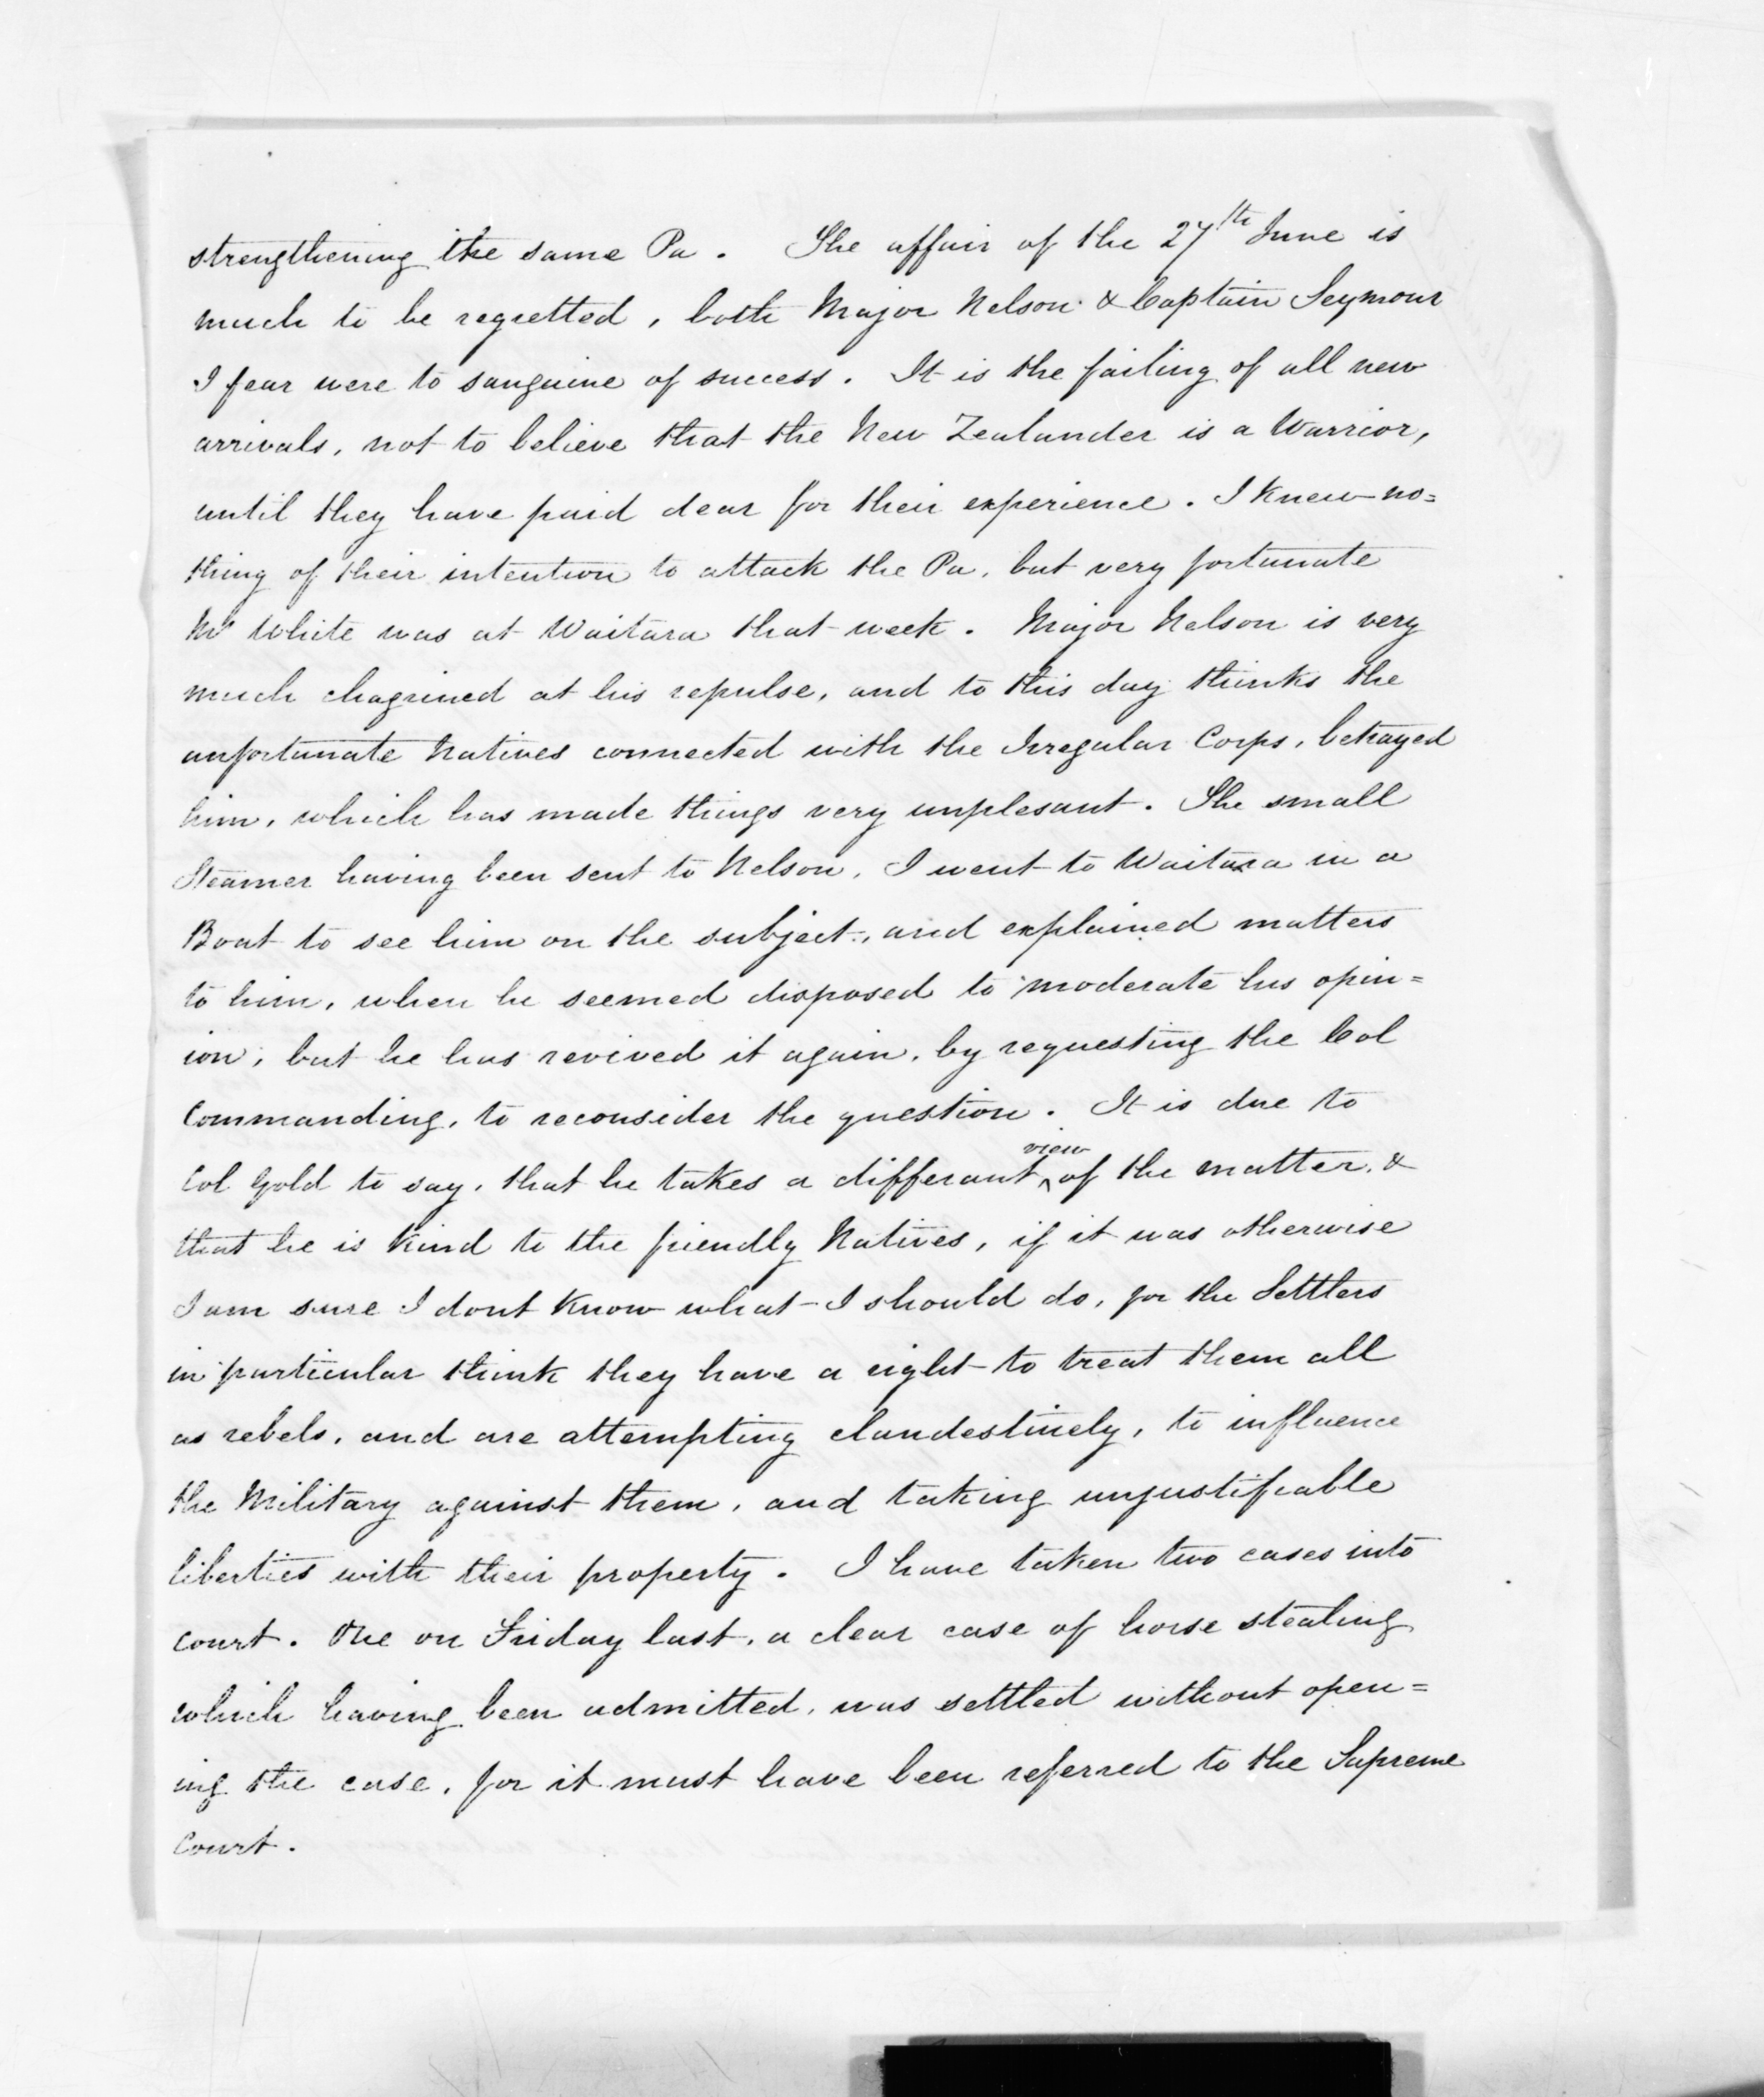 strengthening the same Pa. The affair of the 27th June is
much to be regretted, both Major Nelson & Captain Seymour
I fear were to sanguine of success. It is the failing of all new
arrivals, not to believe that the New Zealander is a Warrior,
until they have paid dear for their experience. I knew no=
thing of their intention to attack the Pa, but very fortunate
Mr White was at Waitara that week. Major Nelson is very
much chagrined at his repulse, and to this day thinks the
unfortunate Natives connected with the Irregular Corps, betrayed
him, which has made things very unplesant. The small
Steamer having been sent to Nelson, I went to Waitara in a
Boat to see him on the subject, and explained matters
to him, when he seemed disposed to moderate his opin=
ion, but he has revived it again, by requesting the Col
Commanding, to reconsider the question. It is due to
Col Gold to say, that he takes a differant view of the matter, &
that he is kind to the friendly Natives, if it was otherwise
I am sure I dont know what I should do, for the Settlers
in particular think they have a right to treat them all
as rebels, and are attempting clandestinely, to influence
the Military against them, and taking unjustifiable
liberties with their property. I have taken two cases into
court. One on Friday last, a clear case of horse stealing
which having been admitted, was settled without open=
ing the case, for it must have been referred to the Supreme
Court.